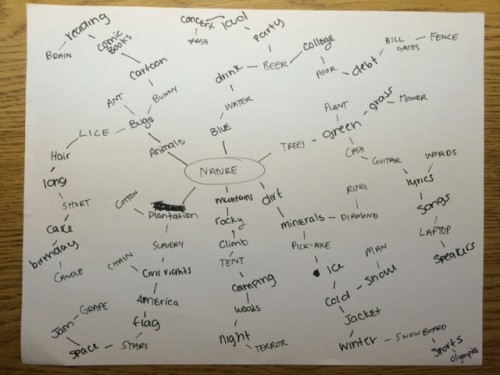 reading
BRAIN
Comic
Books
Cartoon
BUNNY
ANT
Bugs
LICE
Hair
long
SHORT
cake
birthday
CANDLE
Animals
NATURE
BLUE
WATER
drink
BEER
party
loud
Concert
TRASH
College
POOR
debt
BILL
GATES
FENCE
TREES
green
PLANT
grass
MOWER
CASH
GUITAR
lyrics
WORDS
songs
LAPTOP
speakers
dirt
minerals
DIAMOND
RING
PICK-AXE
ICE
cold
snow
MAN
Jacket
winter
SNOWBOARD
sports
olympics
mountains
rocky
Climb
TENT
camping
woods
night
TERROR
Plantation
COTTON
SLAVERY
Civil rights
CHAIN
America
flag
STARS
space
Jam
GRAPE